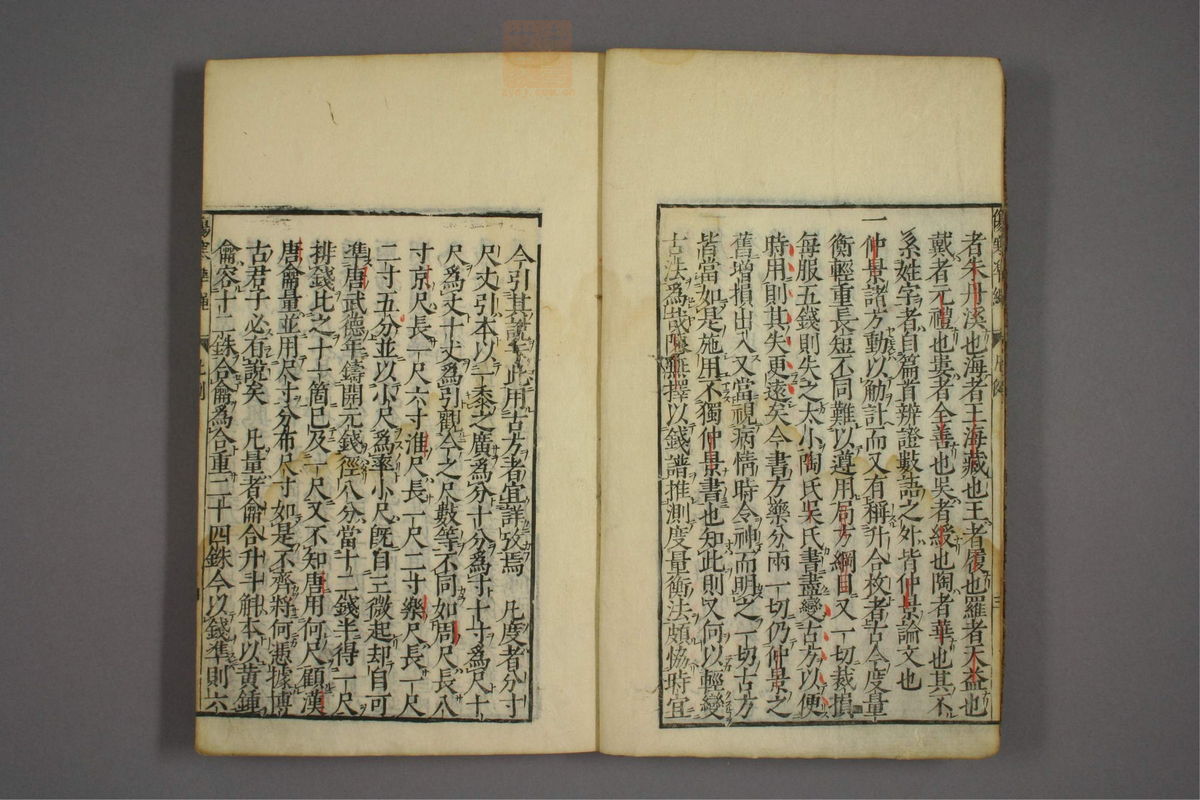 者朱丹溪也海者王海藏也王者履也羅者天益也
戴者元禮也婁者全善也吳者綬也陶者華也其不
系姓字者自篇首辨證數語之外皆仲景論文也
一
仲景諸方動以觔計而又有稱升合枚者古今度量
衡輕重長短不同難以遵用局方綱目又一切裁損
每服五錢則失之太小陶氏吳氏書盡變古方以便
時用則其失更遠矣今書方藥分兩一切仍仲景之
舊增損出入又當視病情時令神而明之一切古方
皆當如是施用不獨仲景書也知此則又何以輕變
古法爲哉隨無擇以錢譜推測度量衡法頗恊時宜
今引其說于此用古方者宜詳攷焉 凡度者分寸
尺丈引本以一黍之廣爲分十分爲寸十寸爲尺十
尺爲丈十丈爲引觀今之尺數等不同如周尺長八
寸京尺長一尺六寸淮尺長一尺二寸樂尺長一尺
二寸五分並以小尺爲率小尺旣自三微起却自可
準唐武德年鑄開元錢徑八分當十二錢半得一尺
排錢比之十十箇已及一尺又不知唐用何尺顧漢
唐龠量並用尺寸分布尺寸如是不齊將何憑據博
古君子必有說矣 凡量者龠合升斗斛本以黄鍾
龠容十二銖合龠爲合重二十四銖今以錢準則六
傷寒準繩 凡例 三